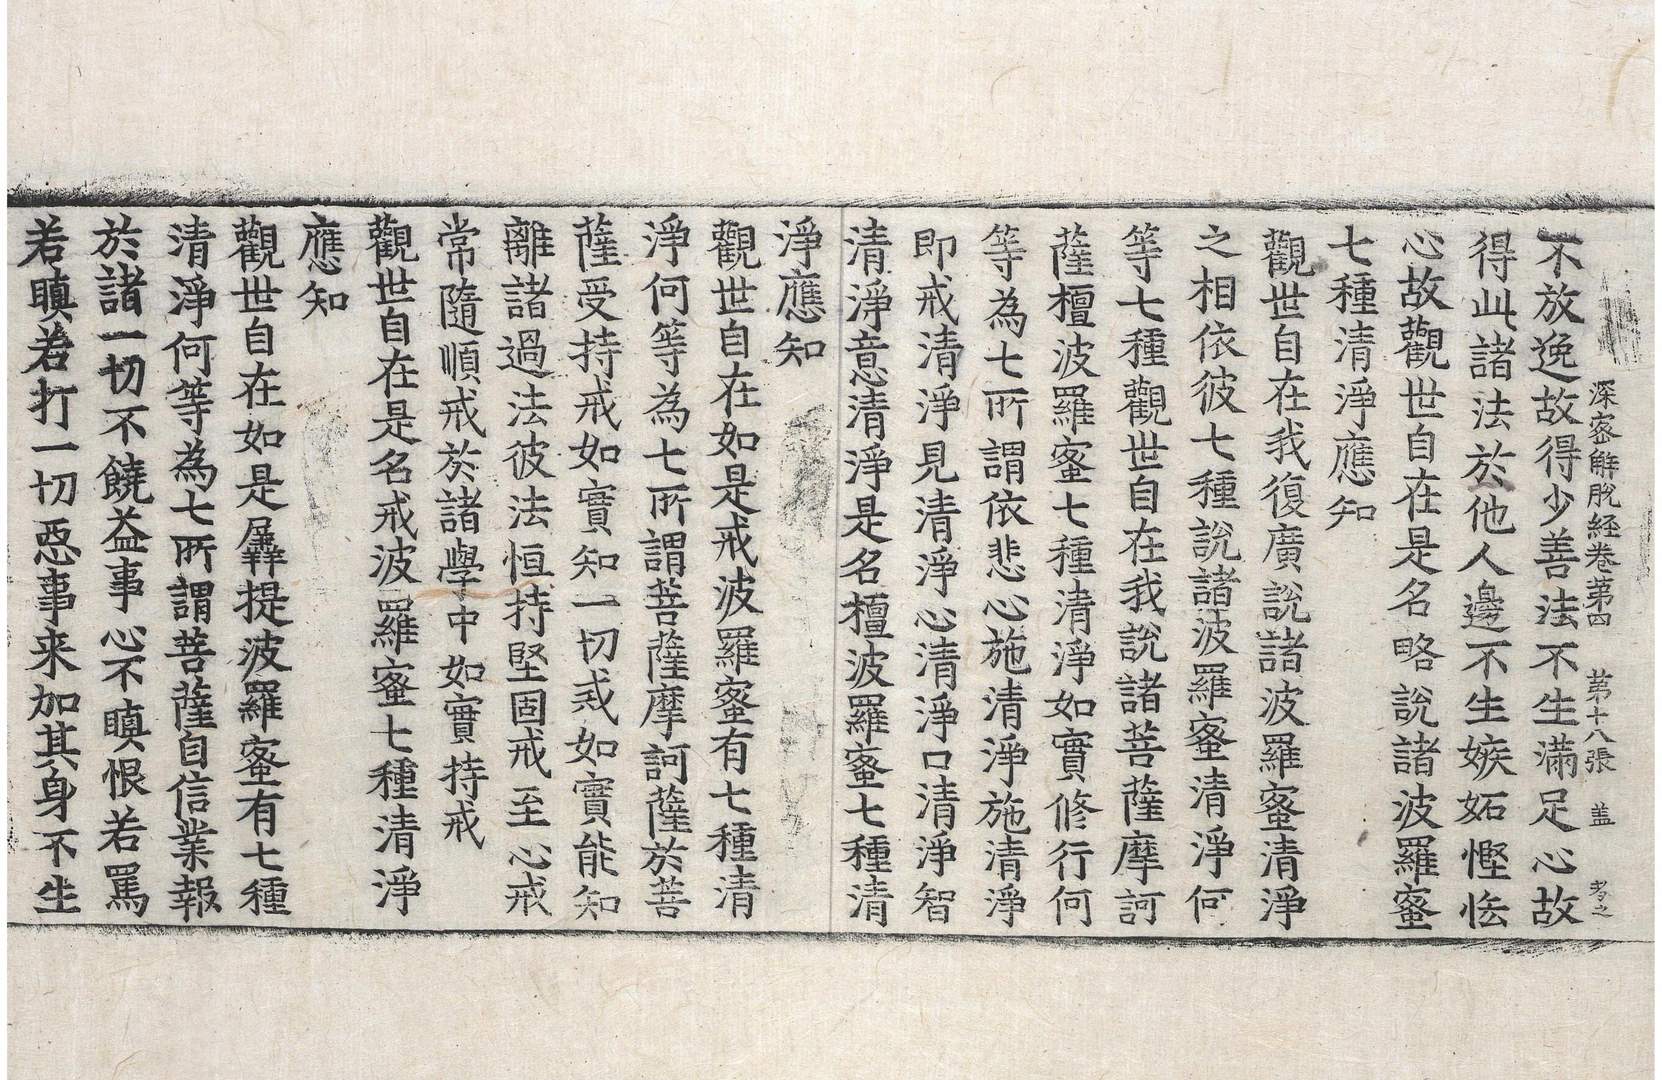 深密解脫經卷苐四 苐十八張 盖
不放逸故得少善法不生滿足心故
得此諸法於他人邊不生嫉妬慳悋
心故觀世自在是名略說諸波羅蜜
七種清淨應知
觀世自在我復廣說諸波羅蜜清淨
之相依彼七種說諸波羅蜜清淨何
等七種觀世自在我說諸菩薩摩訶
薩檀波羅蜜七種清淨如實修行何
等為七所謂依悲心施清淨施清淨
即戒清淨見清淨心清淨口清淨智
清淨意清淨是名檀波羅蜜七種清
淨應知
觀世自在如是戒波羅蜜有七種清
淨何等為七所謂菩薩摩訶薩於菩
薩受持戒如實知一切戒如實能知
離諸過法彼法恒持堅固戒至心戒
常隨順戒於諸學中如實持戒
觀世自在是名戒波羅蜜七種清淨
應知
觀世自在如是羼提波羅蜜有七種
清淨何等為七所謂菩薩自信業報
於諸一切不饒益事心不瞋恨若罵
若瞋若打一切惡事来加其身不生